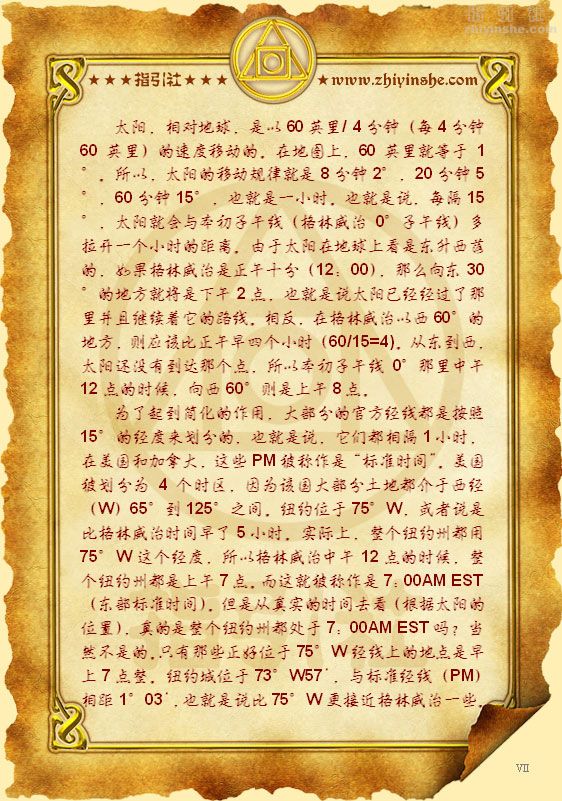 指引社
zhiyinshe.com
★★★指引社★★★
★www.zhiyinshe.com
太阳，相对地球，是以 60 英里/ 4 分钟（每 4 分钟
60 英里）的速度移动的。在地图上，60 英里就等于 1
°。所以，太阳的移动规律就是 8 分钟 2°，20 分钟 5
°，60 分钟 15°，也就是一小时。也就是说，每隔 15
°，太阳就会与本初子午线（格林威治 0°子午线）多
拉开一个小时的距离。由于太阳在地球上看是东升西落
的，如果格林威治是正午十分（12：00），那么向东 30
°的地方就将是下午 2 点，也就是说太阳已经经过了那
里并且继续着它的路线。相反，在格林威治以西 60°的
地方，则应该比正午早四个小时（60/15=4）。从东到西，
太阳还没有到达那个点，所以本初子午线 0°那里中午
12 点的时候，向西 60°则是上午 8 点。
为了起到简化的作用，大部分的官方经线都是按照
15°的经度来划分的，也就是说，它们都相隔 1 小时，
在美国和加拿大，这些 PM 被称作是“标准时间”。美国
被划分为 4 个时区，因为该国大部分土地都介于西经
（W）65°到 125°之间。纽约位于 75°W，或者说是
比格林威治时间早了 5 小时。实际上，整个纽约州都用
75°W 这个经度，所以格林威治中午 12 点的时候，整
个纽约州都是上午 7 点。而这就被称作是 7：00AM EST
（东部标准时间）。但是从真实的时间去看（根据太阳的
位置），真的是整个纽约州都处于 7：00AM EST 吗？当
然不是的。只有那些正好位于 75°W 经线上的地点是早
上 7 点整。纽约城位于 73°W57＇，与标准经线（PM）
相距 1°03＇，也就是说比 75°W 更接近格林威治一些。
VII